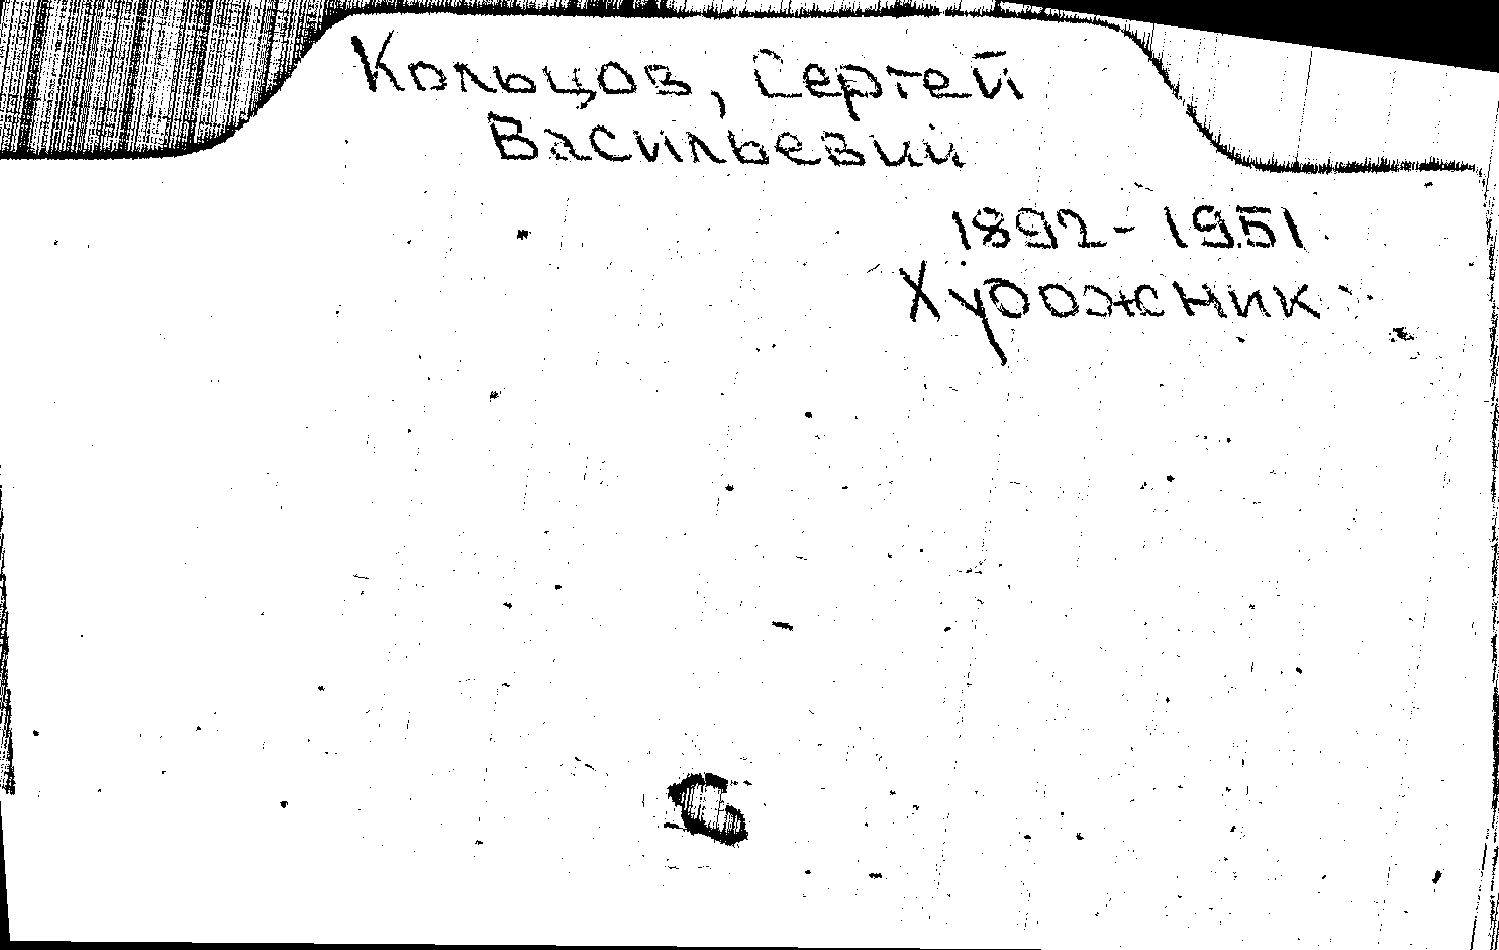 Кольцов, Сергей
Васильевич
1892-1951
Художник